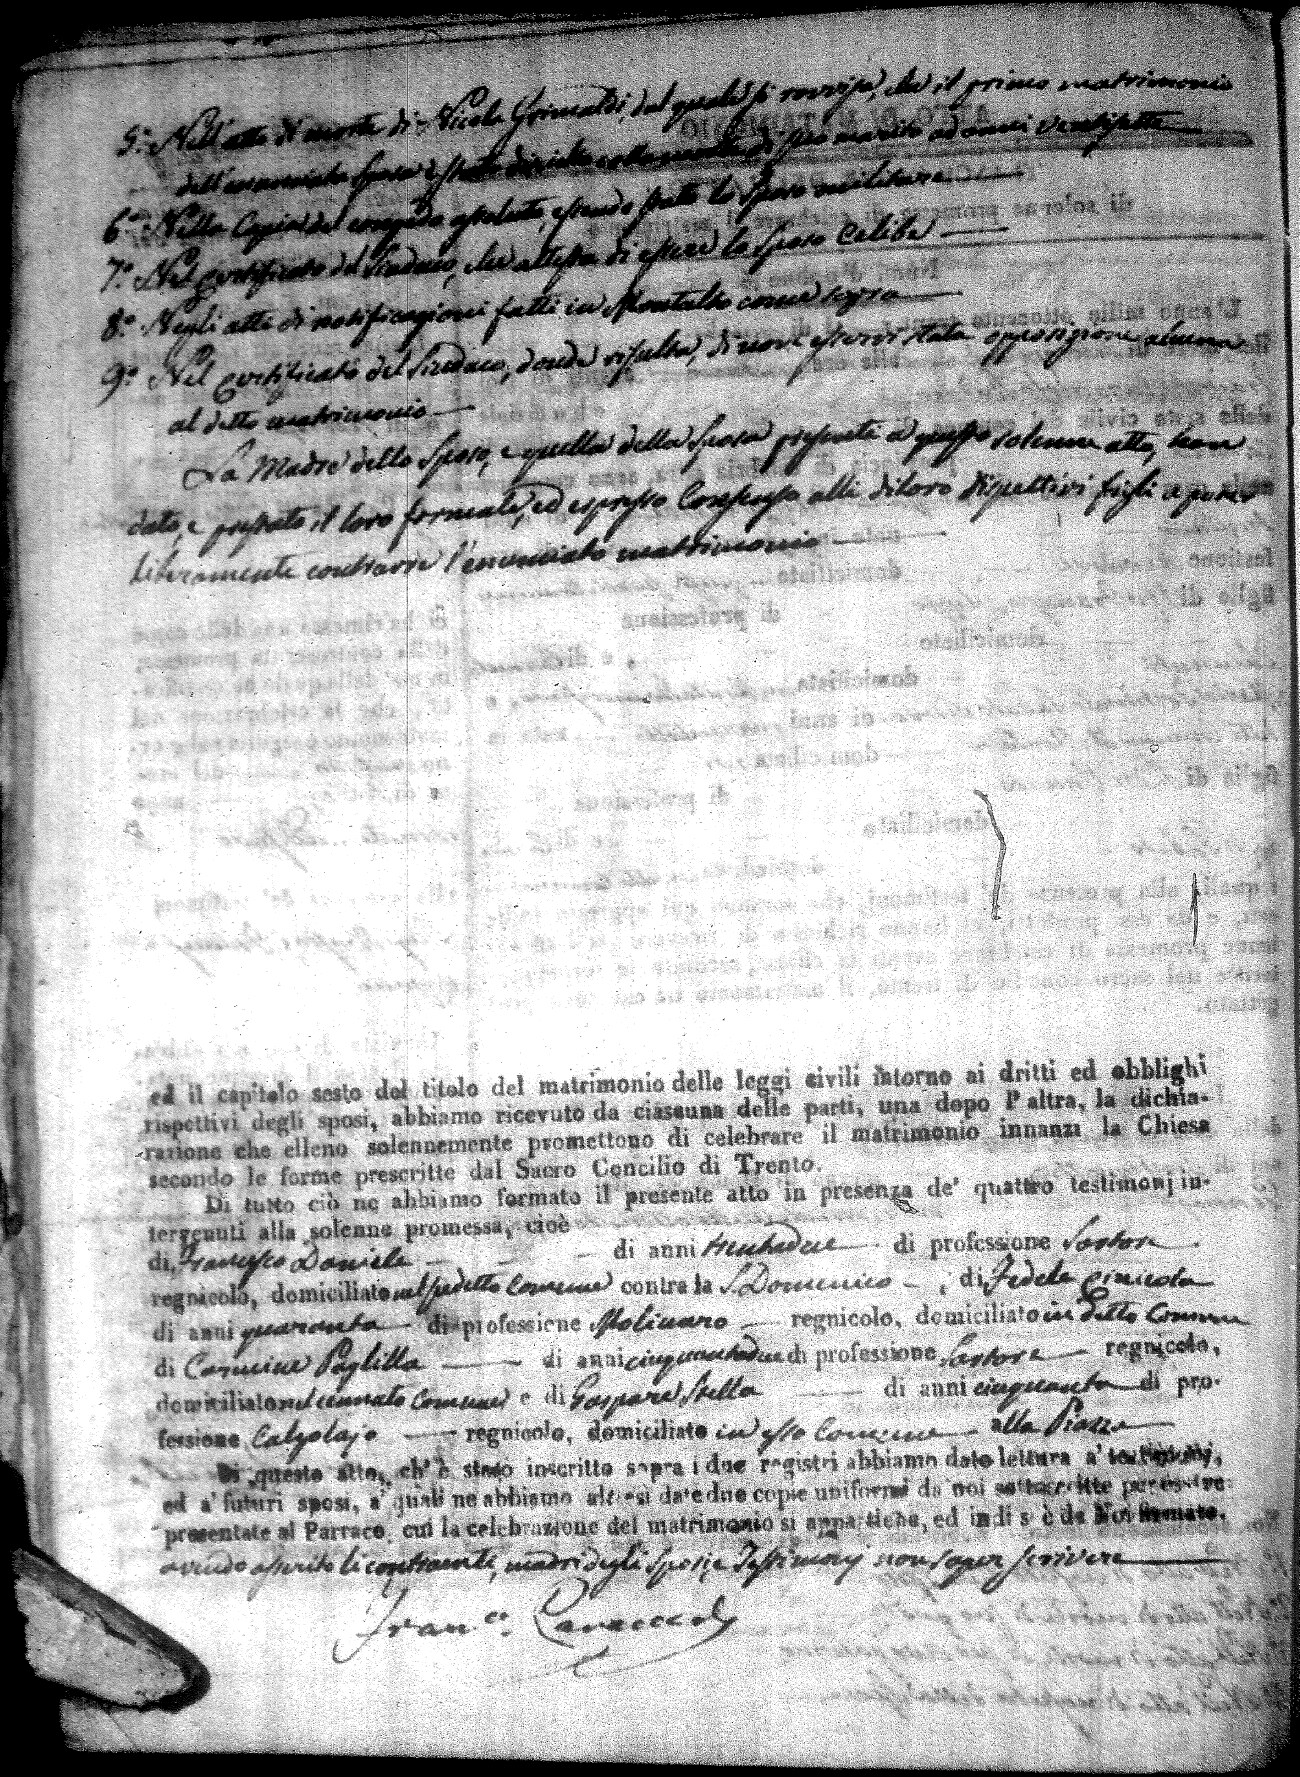 5.° Nell'atto di morte di Nicola Grimaldi, dal quale si rovvisa, che il primo matrimonio
dell'enunciata sposa è stato disciolto colla morte di suo marito ad anni ventisette
6.° Nella Copia del congedo assoluto, essendo stato lo Sposo militare
7.° Nel certificato del Sindaco, che attesta di essere lo sposo celibe
8.° Negli atti di notificazioni fatti in Montalto come sopra
9.° Nel certificato del Sindaco, donde risulta, di non esservi stata opposizione alcuna
al detto matrimonio
La Madre dello Sposo, e quella della Sposa presenti a questo solenne atto, hanno
dato, e prestato il loro formale, ed espresso Consenso alli di loro rispettivi figli a poter
liberamente contrarre l'enunciato matrimonio
ed il capitolo sesto del titolo del matrimonio delle leggi civili intorno ai dritti ed obblighi
rispettivi degli sposi, abbiamo ricevuto da ciascuna delle parti, una dopo l'altra, la dichia-
razione che elleno solennemente promettono di celebrare il matrimonio innanzi la Chiesa
secondo le forme prescritte dal Sacro Concilio di Trento.
Di tutto ciò ne abbiamo formato il presente atto in presenza de' quattro testimonj in-
tervenuti alla solenne promessa, cioè
di Francesco Daniele di anni trentadue di professione Sartore
regnicolo, domiciliato nel sudetto Comune contra la S. Domenico, di Fedele
di anni quaranta di professione Molinaro regnicolo, domiciliato in detto Comune
di Carmine Paglilla di anni cinquantadue di professione Sartore regnicolo,
domiciliato nel cennato Comune e di Gaspare Stella di anni cinquanta di pro-
fessione Calzolajo regnicolo, domiciliato in esso Comune alla Piazza
Di questo atto, ch'è stato inscritto sopra i due registri abbiamo dato lettura a' testimonj,
ed a' futuri sposi, a' quali ne abbiamo altresì date due copie uniformi da noi sottoscritte per essere
presentate al Parroco, cui la celebrazione del matrimonio si appartiene, ed indi s'è da Noi firmato,
avendo asserito li contraenti, madri degli Sposi, e Testimonj non saper scrivere
Fran.co